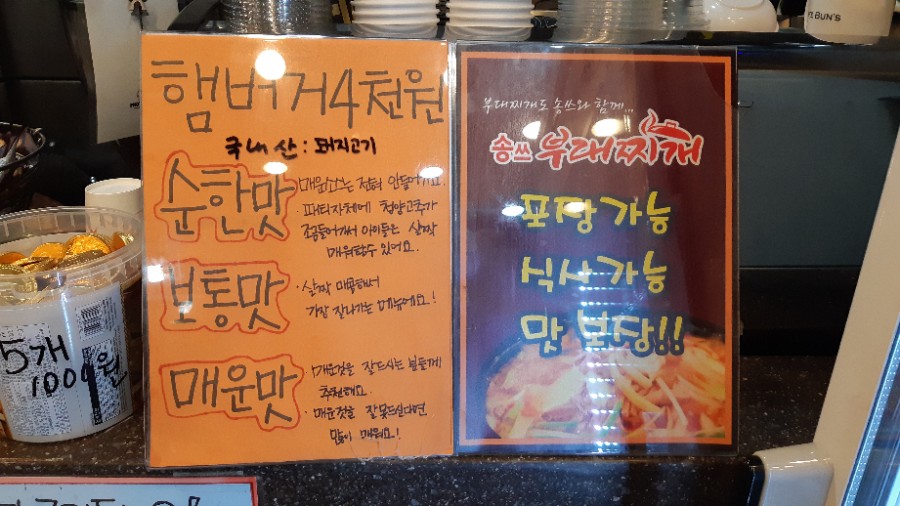 햄버거4천원
국내산 : 돼지고기
순한맛
매운소스는 전혀 안들어가요.
패티자체에 청양고추가
조금들어가서 아이들은 살짝
매워할수 있어요.
보통맛
· 살짝 매콤해서
가장 잘나가는 메뉴에요!
매운맛
· 매운것을 잘드시는 분들께
추천해요.
· 매운것을 잘못드신다면
많이 매워요!
부대찌개도 송쓰와 함께...
송쓰 부대찌개
포장 가능
식사 가능
맛 보당!!
5개
1000원
BUN'S